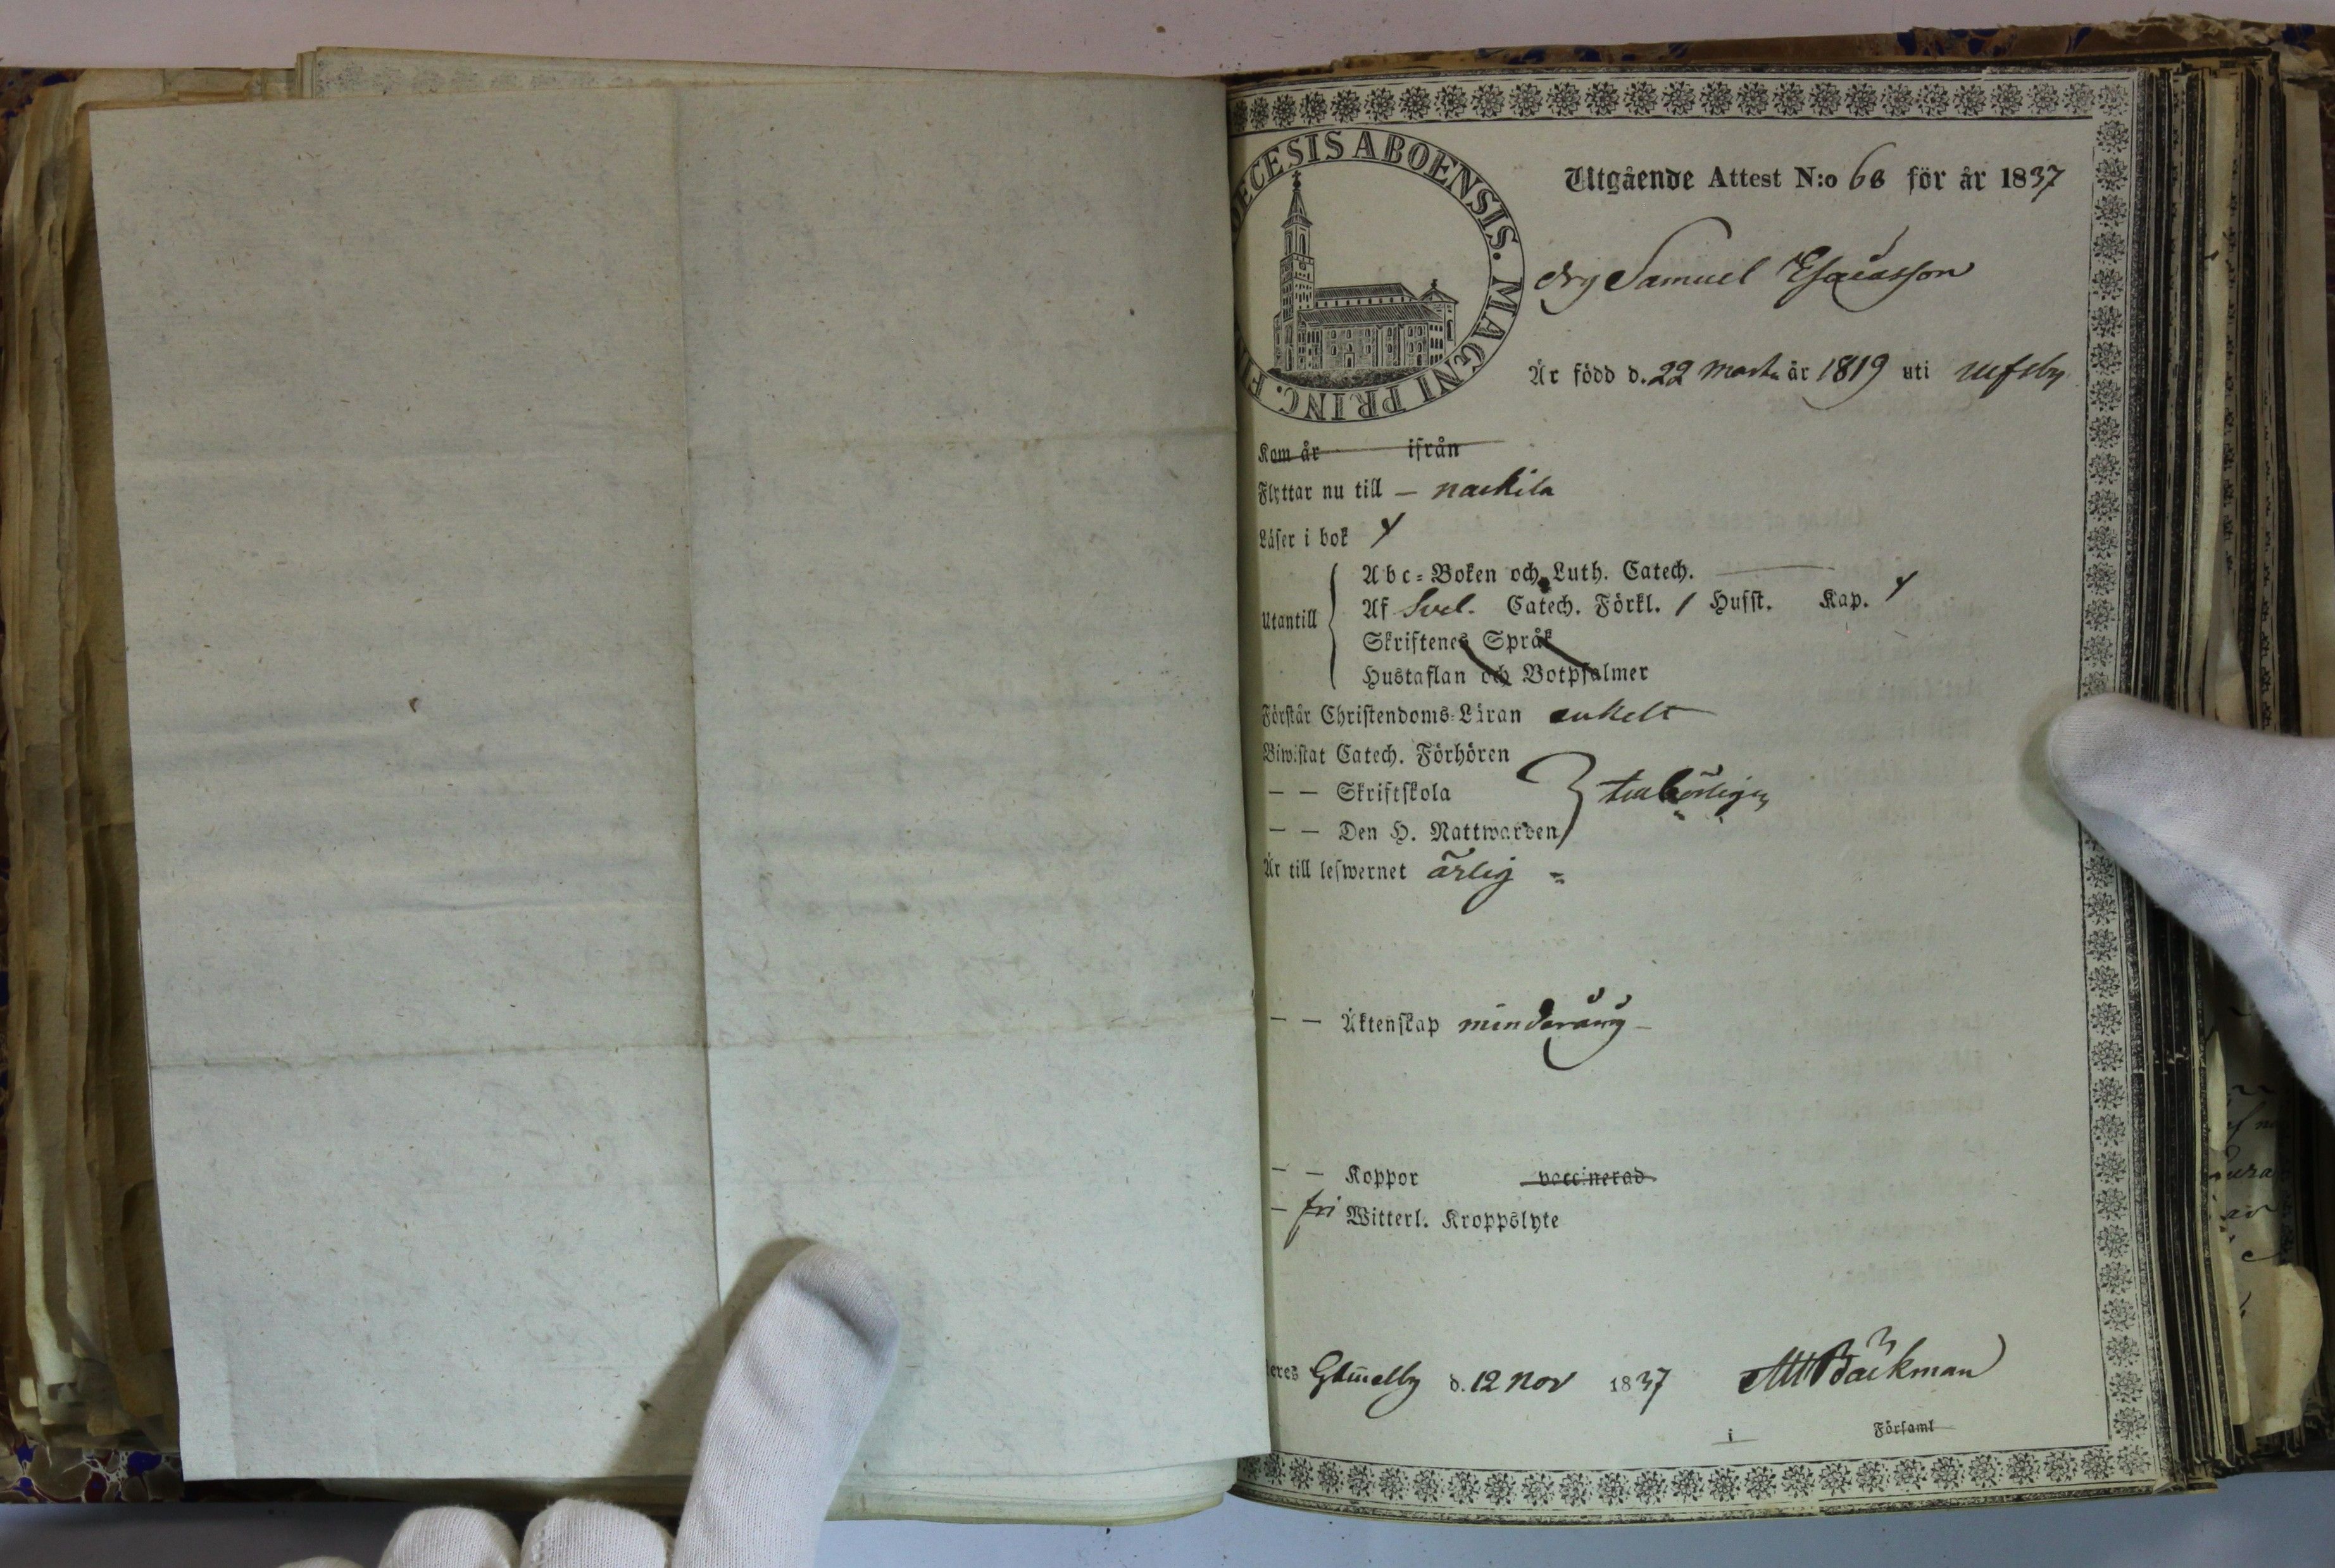 DECESIS ABOENSIS. MAGNI PRINC. FI
Utgående Attest N:o 68 för år 1837
drg Samuel Esaiasson
Är född d. 22 Martii år 1819 uti Ulfsby
Kom år ifrån
Flyttar nu till — Nackila
Läser i bok
Utantill
Abc-Boken och Luth. Catech.
Af Svel. Catech. Förkl. / Husst. Kap.
Skriftenes Språk
Hustaflan och Botpsalmer
Förstår Christendoms-Läran enkelt
Biwistat Catech. Förhören
— — Skriftskola tillbörligen
— — Den H. Nattwarden
Är till lefwernet ärlig
— — Äktenskap minderårig
— — Koppor vaccinerad
— fri Witterl. Kroppslyte
eres d. 12 Nov 1837 Bäckman
i Församl